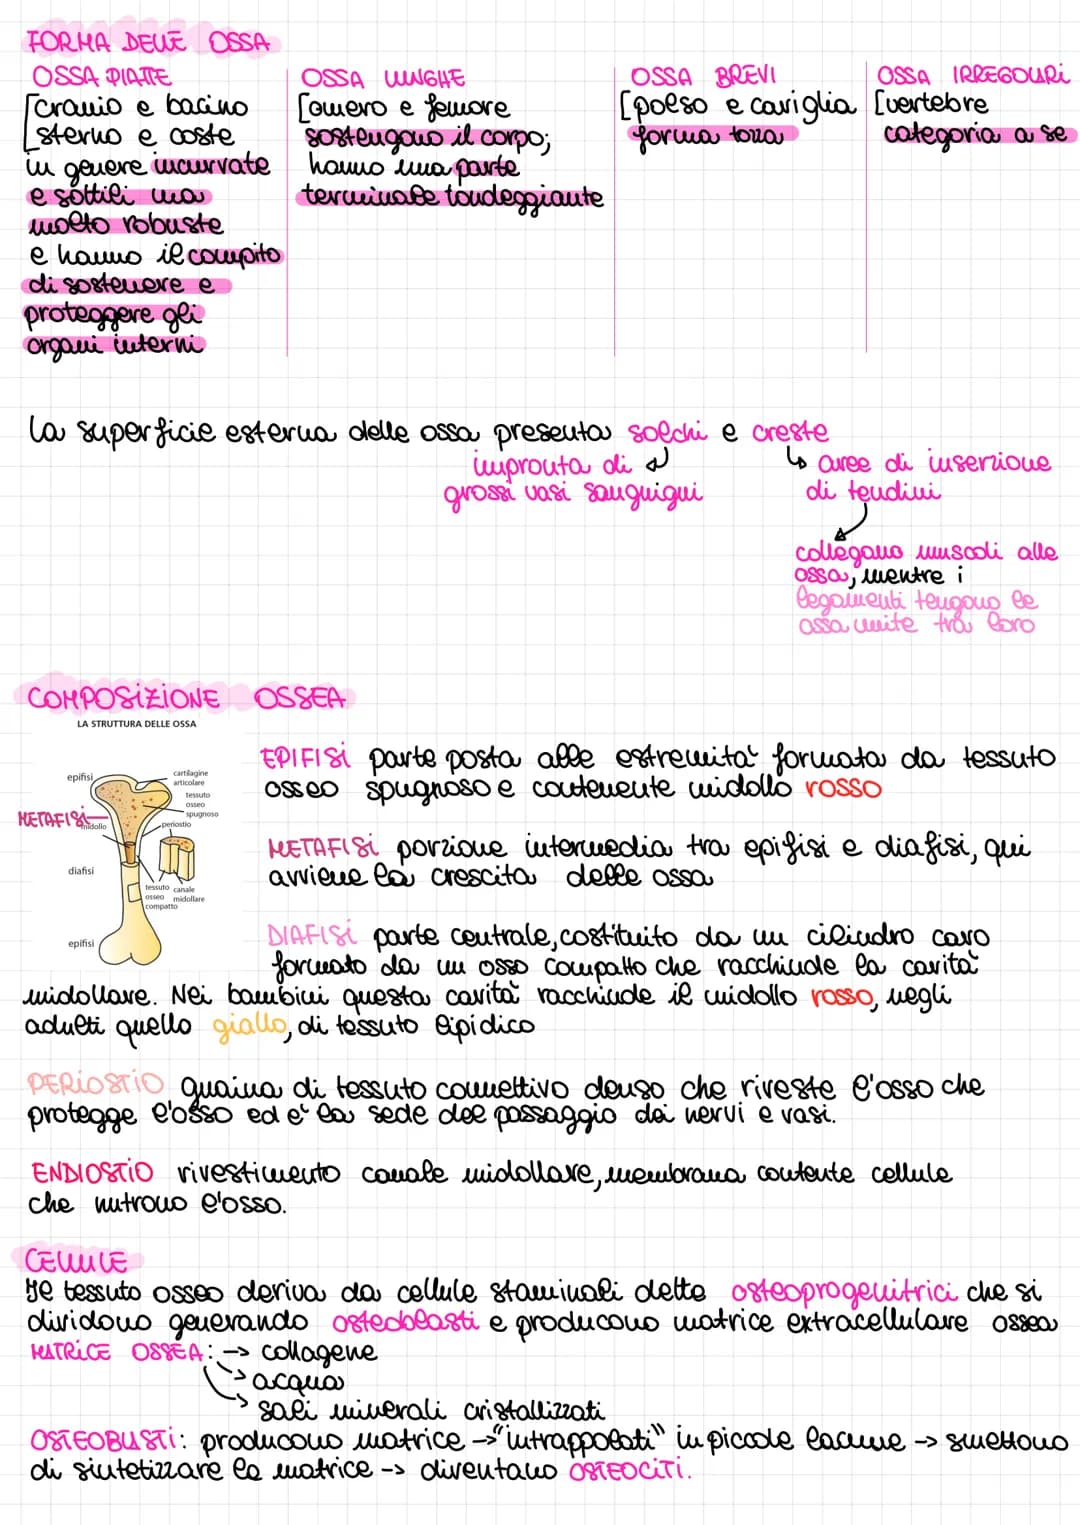 FORMA DELLE OSSA
OSSA PIATTE
[cranio e bacino
sterno e coste
in genere incurvate
e sottili ma
molto robuste
e hanno il compito
di sostenere e
proteggere gli
organi interni
OSSA LUNGHE
[omero e femore
sostengono il corpo;
hanno una parte
terminale tondeggiante
OSSA BREVI
[polso e caviglia
forma tozza
OSSA IRREGOLARI
[vertebre
categoria a se
La superficie esterna delle ossa presenta solchi e creste
impronta di
grossi vasi sanguigni
↳ aree di inserzione
di tendini
collegano muscoli alle
ossa, mentre i
legamenti tengono le
ossa unite tra loro
COMPOSIZIONE OSSEA
LA STRUTTURA DELLE OSSA
epifisi
cartilagine
articolare
tessuto
osseo
spugnoso
METAFISI
midollo
periostio
diafisi
tessuto
osseo
compatto
canale
midollare
epifisi
EPIFISI parte posta alle estremità formata da tessuto
osseo spugnoso e contenente midollo rosso
METAFISI porzione intermedia tra epifisi e diafisi, qui
avviene la crescita delle ossa
DIAFISI parte centrale, costituito da un cilindro cavo
formato da un osso compatto che racchiude la cavità
midollare. Nei bambini questa cavità racchiude il midollo rosso, negli
adulti quello giallo, di tessuto lipidico
PERIOSTIO guaina di tessuto connettivo denso che riveste l'osso che
protegge l'osso ed è la sede del passaggio dei nervi e vasi.
ENDIOSTIO rivestimento canale midollare, membrana contente cellule
che nutrono l'osso.
CELLULE
Il tessuto osseo deriva da cellule staminali dette osteoprogenitrici che si
dividono generando osteoblasti e producono matrice extracellulare ossea
MATRICE OSSEA: → collagene
→ acqua
→ sali minerali cristallizzati
OSTEOBLASTI: producono matrice → "intrappolati" in piccole lacune → smettono
di sintetizzare la matrice → diventano OSTEOCITI.